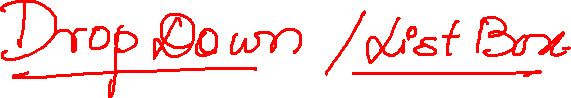 Drop Down / List Box